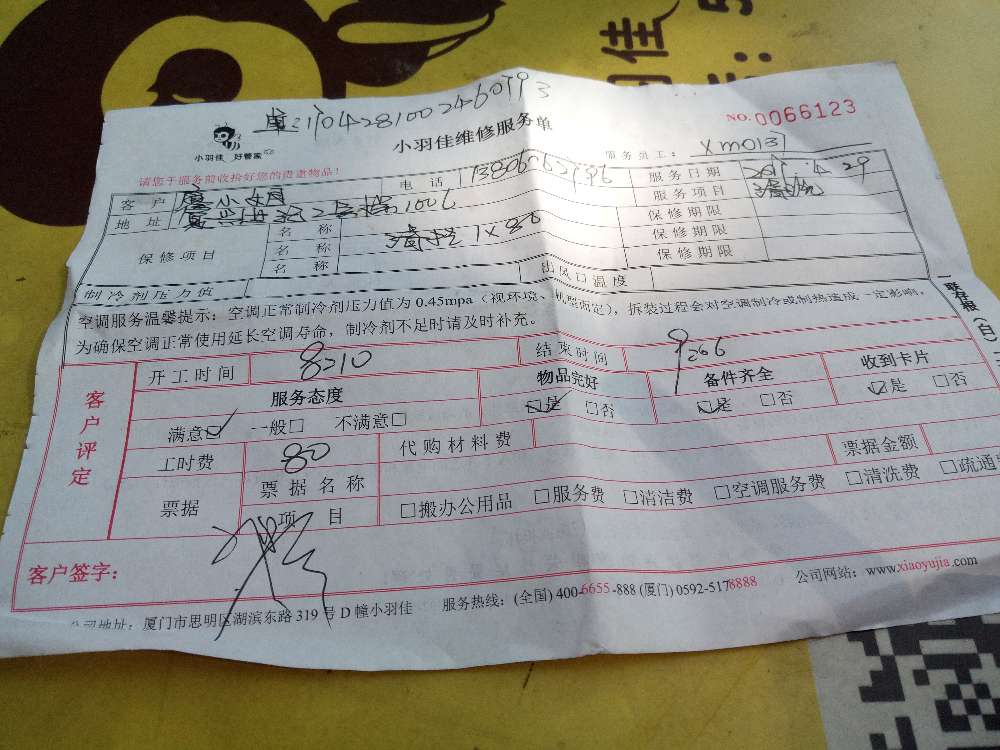 佳
小羽佳 好管家
小羽佳维修服务单
NO.0066123
服务员工: XM0137
请您于服务前收拾好您的贵重物品!
客户 廖小姐 电话 服务日期
地址 服务项目 清洗
保修项目 名称 1×80 保修期限
名称 保修期限
名称 保修期限
制冷剂压力值 出风口温度
空调服务温馨提示:空调正常制冷剂压力值为0.45mpa(视环境、机型而定),拆装过程会对空调制冷或制热造成一定影响,
为确保空调正常使用延长空调寿命,制冷剂不足时请及时补充。
一联存根(白)
客户评定
开工时间 8:10 结束时间
服务态度 物品完好 备件齐全 收到卡片
满意☑ 一般□ 不满意□ ☑是 □否 ☑是 □否 ☑是 □否
工时费 80 代购材料费 票据金额
票据 票据名称
项目 □搬办公用品 □服务费 □清洁费 □空调服务费 □清洗费 □疏通
客户签字:
公司地址:厦门市思明区湖滨东路319号D幢小羽佳 服务热线:(全国)400-6655-888(厦门)0592-5178888 公司网站:www.xiaoyujia.com